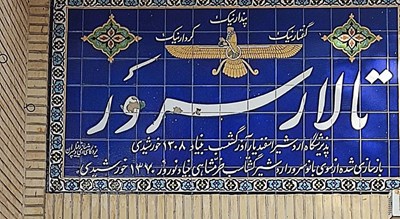 پندار نیک
گفتار نیک
کردار نیک
تالار سرور
پذیرشگاه اردشیر اسفندیار آذرگشسب بنیاد ۱۳۰۸ خورشیدی
بازسازی شده از سوی بانو سرور اردشیر گشتاسب خرمشاهی بنیاد نوروز ۱۳۷۰ خورشیدی